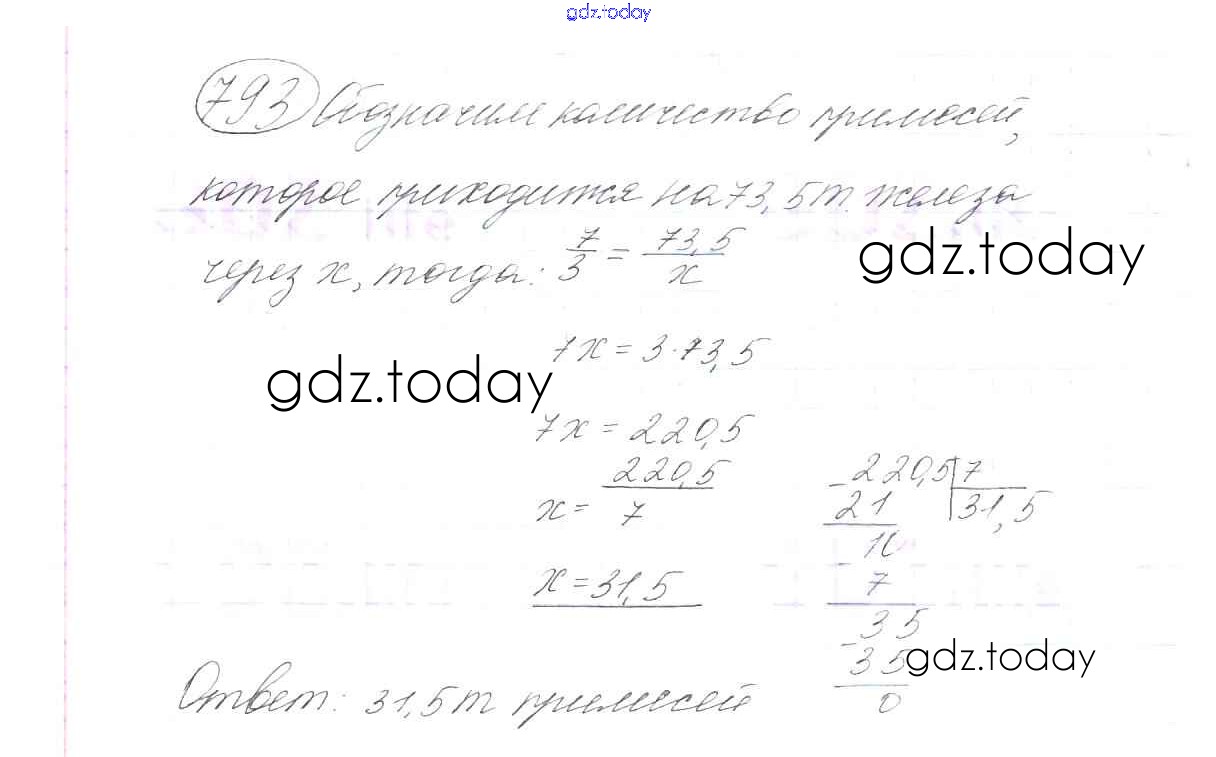 gdz.today
793 Обозначим количество примесей,
которое приходится на 73,5 т железа
через х, тогда: 7/3 = 73,5/х
gdz.today
7х = 3·73,5
gdz.today
7х = 220,5
х = 220,5/7
х = 31,5
-220,5 | 7
21 | 31,5
10
-
7
-35
35
0
gdz.today
Ответ: 31,5 т примесей